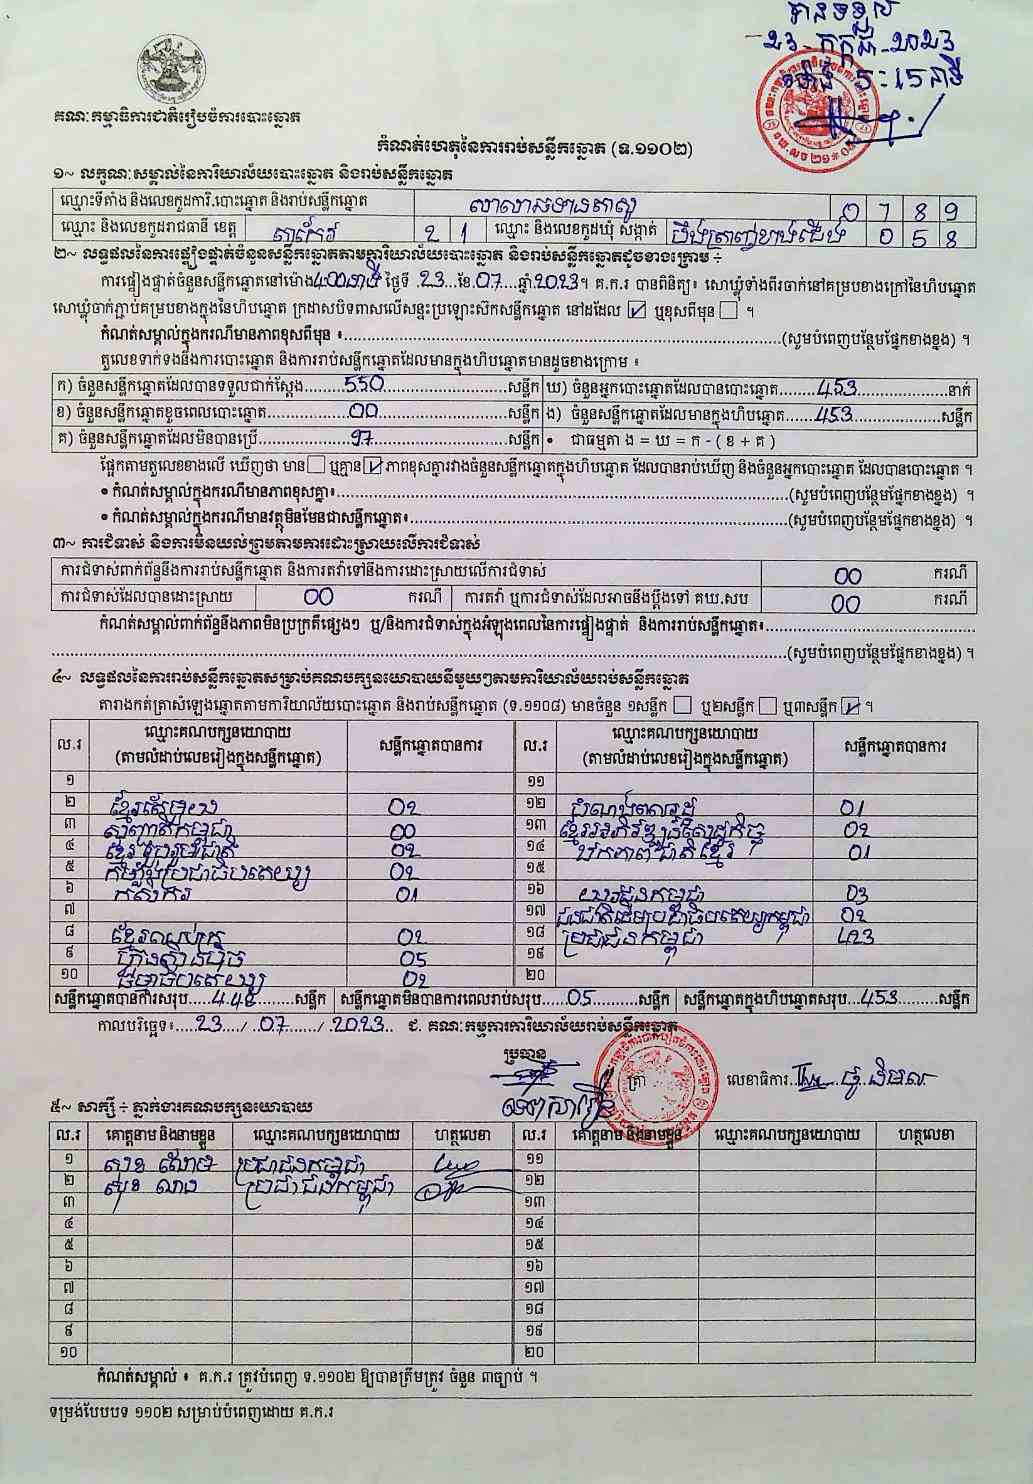 បានទទួល
23-កក្កដា-2023
ម៉ោង 5:15 នាទី
គណៈកម្មាធិការជាតិរៀបចំការបោះឆ្នោត
កំណត់ហេតុនៃការរាប់សន្លឹកឆ្នោត (ទ.១១០២)
១~ លក្ខណៈសម្គាល់នៃការិយាល័យបោះឆ្នោត និងរាប់សន្លឹកឆ្នោត
ឈ្មោះទីតាំង និងលេខកូដការិ.បោះឆ្នោត និងរាប់សន្លឹកឆ្នោត 0789
ឈ្មោះ និងលេខកូដរាជធានី ខេត្ត តាកែវ 21 ឈ្មោះ និងលេខកូដឃុំ សង្កាត់ បឹងត្រាញ់ខាងជើង 058
២~ លទ្ធផលនៃការផ្ទៀងផ្ទាត់ចំនួនសន្លឹកឆ្នោតតាមការិយាល័យបោះឆ្នោត និងរាប់សន្លឹកឆ្នោតដូចខាងក្រោម ÷
ការផ្ទៀងផ្ទាត់ចំនួនសន្លឹកឆ្នោតនៅម៉ោង 4:00នាទី ថ្ងៃទី .23...ខែ.07....ឆ្នាំ.2023។ គ.ក.រ បានពិនិត្យ៖ សោឃ្លុំទាំងពីរចាក់នៅគម្របខាងក្រៅនៃហិបឆ្នោត
សោឃ្លុំចាក់ភ្ជាប់គម្របខាងក្នុងនៃហិបឆ្នោត ក្រដាសបិទពាសលើសន្ទះប្រឡោះស៊កសន្លឹកឆ្នោត នៅដដែល ☑ ឬខុសពីមុន ☐ ។
កំណត់សម្គាល់ក្នុងករណីមានភាពខុសពីមុន ៖..........(សូមបំពេញបន្ថែមផ្នែកខាងខ្នង) ។
តួលេខទាក់ទងនឹងការបោះឆ្នោត និងការរាប់សន្លឹកឆ្នោតដែលមានក្នុងហិបឆ្នោតមានដូចខាងក្រោម ៖
ក) ចំនួនសន្លឹកឆ្នោតដែលបានទទួលជាក់ស្ដែង.......550.......សន្លឹក ឃ) ចំនួនអ្នកបោះឆ្នោតដែលបានបោះឆ្នោត.......453.......នាក់
ខ) ចំនួនសន្លឹកឆ្នោតខូចពេលបោះឆ្នោត.......00.......សន្លឹក ង) ចំនួនសន្លឹកឆ្នោតដែលមានក្នុងហិបឆ្នោត.......453.......សន្លឹក
គ) ចំនួនសន្លឹកឆ្នោតដែលមិនបានប្រើ.......97.......សន្លឹក • ជាធម្មតា ង = ឃ = ក - ( ខ + គ )
ផ្អែកតាមតួលេខខាងលើ ឃើញថា មាន☐ ឬគ្មាន☑ ភាពខុសគ្នារវាងចំនួនសន្លឹកឆ្នោតក្នុងហិបឆ្នោត ដែលបានរាប់ឃើញ និងចំនួនអ្នកបោះឆ្នោត ដែលបានបោះឆ្នោត ។
• កំណត់សម្គាល់ក្នុងករណីមានភាពខុសគ្នា៖..........(សូមបំពេញបន្ថែមផ្នែកខាងខ្នង) ។
• កំណត់សម្គាល់ក្នុងករណីមានវត្ថុមិនមែនជាសន្លឹកឆ្នោត៖..........(សូមបំពេញបន្ថែមផ្នែកខាងខ្នង) ។
៣~ ការជំទាស់ និងការមិនយល់ព្រមតាមការដោះស្រាយលើការជំទាស់
ការជំទាស់ពាក់ព័ន្ធនឹងការរាប់សន្លឹកឆ្នោត និងការតវ៉ាទៅនឹងការដោះស្រាយលើការជំទាស់ 00 ករណី
ការជំទាស់ដែលបានដោះស្រាយ 00 ករណី ការតវ៉ា ឬការជំទាស់ដែលអាចនឹងប្ដឹងទៅ គឃ.សប 00 ករណី
កំណត់សម្គាល់ពាក់ព័ន្ធនឹងភាពមិនប្រក្រតីផ្សេងៗ ឬ/និងការជំទាស់ក្នុងអំឡុងពេលនៃការផ្ទៀងផ្ទាត់ និងការរាប់សន្លឹកឆ្នោត៖..........
..........(សូមបំពេញបន្ថែមផ្នែកខាងខ្នង) ។
៤~ លទ្ធផលនៃការរាប់សន្លឹកឆ្នោតសម្រាប់គណបក្សនយោបាយនីមួយៗតាមការិយាល័យរាប់សន្លឹកឆ្នោត
តារាងកត់ត្រាសំឡេងឆ្នោតតាមការិយាល័យបោះឆ្នោត និងរាប់សន្លឹកឆ្នោត (ទ.១១០៨) មានចំនួន ១សន្លឹក ☐ ឬ២សន្លឹក ☐ ឬ៣សន្លឹក ☑ ។
ល.រ ឈ្មោះគណបក្សនយោបាយ (តាមលំដាប់លេខរៀងក្នុងសន្លឹកឆ្នោត) សន្លឹកឆ្នោតបានការ ល.រ ឈ្មោះគណបក្សនយោបាយ (តាមលំដាប់លេខរៀងក្នុងសន្លឹកឆ្នោត) សន្លឹកឆ្នោតបានការ
១ ១១
២ ខ្មែរតែមួយ 02 ១២ ដំណាងរាស្ត្រ 01
៣ សញ្ជាតិកម្ពុជា 00 ១៣ ខ្មែរអភិវឌ្ឍន៍សេដ្ឋកិច្ច 02
៤ ខ្មែររួបរួមជាតិ 02 ១៤ ឯកភាពជាតិខ្មែរ 01
៥ កម្លាំងប្រជាធិបតេយ្យ 02 ១៥
៦ កសិករ 01 ១៦ យុវជនកម្ពុជា 03
៧ ១៧ ជនជាតិដើមប្រជាធិបតេយ្យកម្ពុជា 02
៨ ខ្មែរឈប់ក្រ 02 ១៨ ប្រជាជនកម្ពុជា 423
៩ ហ្វ៊ុនស៊ិនប៉ិច 05 ១៩
១០ ធម្មាធិបតេយ្យ 02 ២០
សន្លឹកឆ្នោតបានការសរុប....448....សន្លឹក សន្លឹកឆ្នោតមិនបានការពេលរាប់សរុប....05....សន្លឹក សន្លឹកឆ្នោតក្នុងហិបឆ្នោតសរុប....453....សន្លឹក
កាលបរិច្ឆេទ៖....23..../.07...../.2023.. ជ. គណៈកម្មការការិយាល័យរាប់សន្លឹកឆ្នោត
ប្រធាន
ត្រា លេខាធិការ
៥~ សាក្សី ÷ ភ្នាក់ងារគណបក្សនយោបាយ
ល.រ គោត្តនាម និងនាមខ្លួន ឈ្មោះគណបក្សនយោបាយ ហត្ថលេខា ល.រ គោត្តនាម និងនាមខ្លួន ឈ្មោះគណបក្សនយោបាយ ហត្ថលេខា
១ ប្រជាជនកម្ពុជា ១១
២ ប្រជាជនកម្ពុជា ១២
៣ ១៣
៤ ១៤
៥ ១៥
៦ ១៦
៧ ១៧
៨ ១៨
៩ ១៩
១០ ២០
កំណត់សម្គាល់ ៖ គ.ក.រ ត្រូវបំពេញ ទ.១១០២ ឱ្យបានត្រឹមត្រូវ ចំនួន ៣ច្បាប់ ។
ទម្រង់បែបបទ ១១០២ សម្រាប់បំពេញដោយ គ.ក.រ